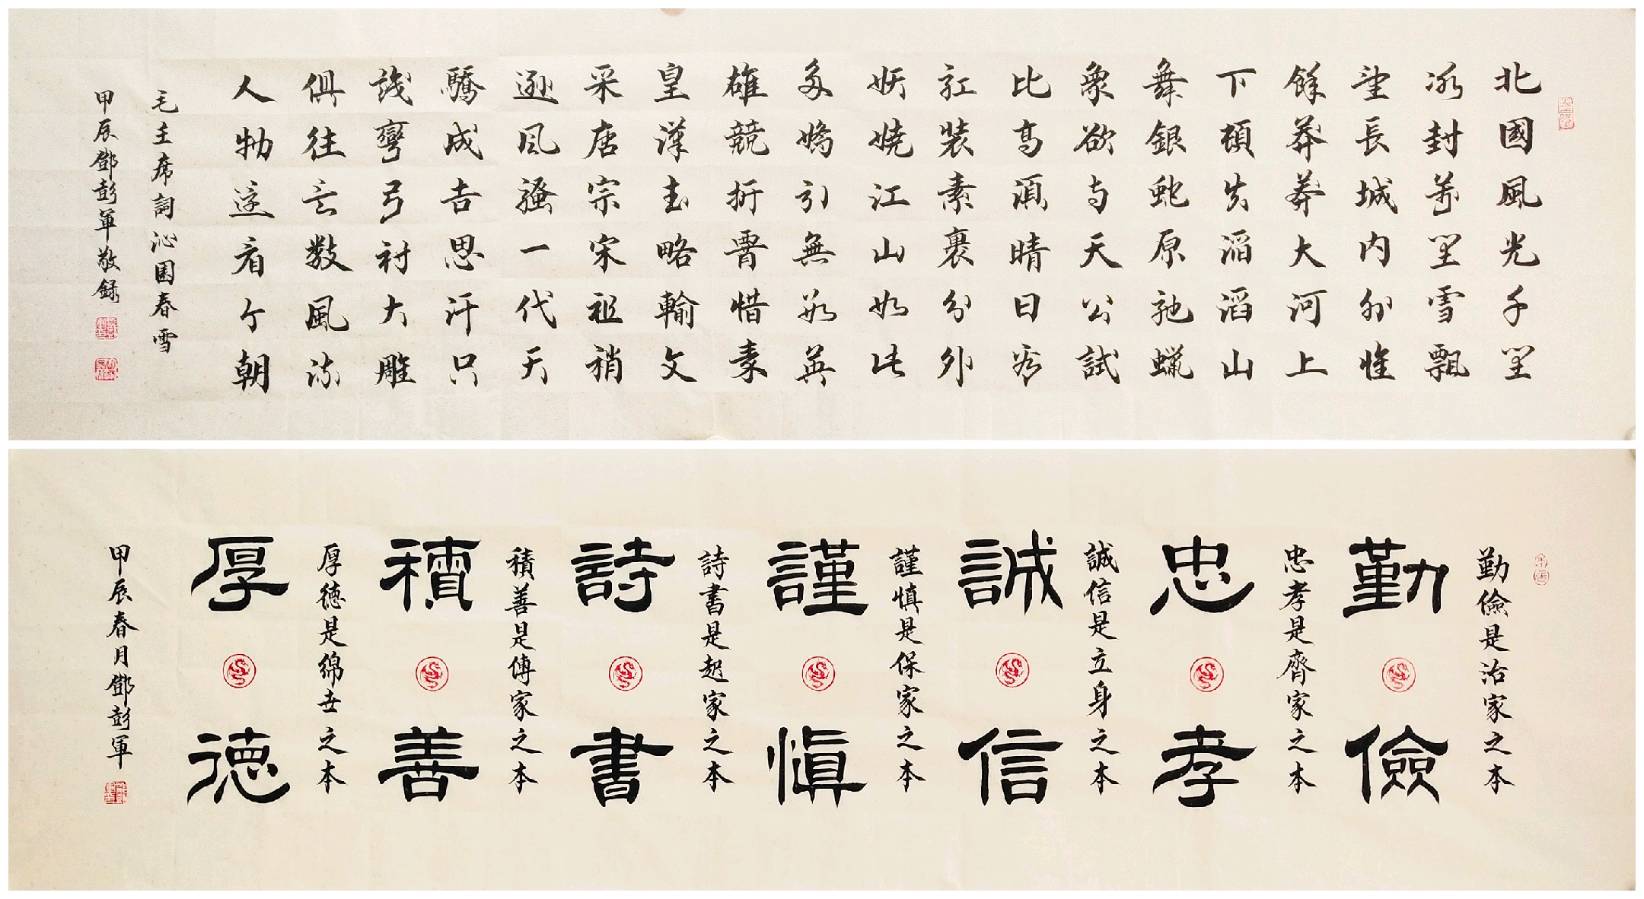 北國風光千里
冰封萬里雪飄
望長城内外惟
餘莽莽大河上
下頓失滔滔山
舞銀蛇原馳蠟
象欲与天公試
比高須晴日看
紅裝素裹分外
妖嬈江山如此
多嬌引無數英
雄競折腰惜秦
皇漢武略輸文
采唐宗宋祖稍
遜風騷一代天
驕成吉思汗只
識彎弓射大雕
俱往矣數風流
人物還看今朝
毛主席詞沁園春雪
甲辰鄧彭軍敬録
勤儉是治家之本
勤儉
忠孝是齊家之本
忠孝
誠信是立身之本
誠信
謹慎是保家之本
謹慎
詩書是起家之本
詩書
積善是傳家之本
積善
厚德是綿世之本
厚德
甲辰春月鄧彭軍